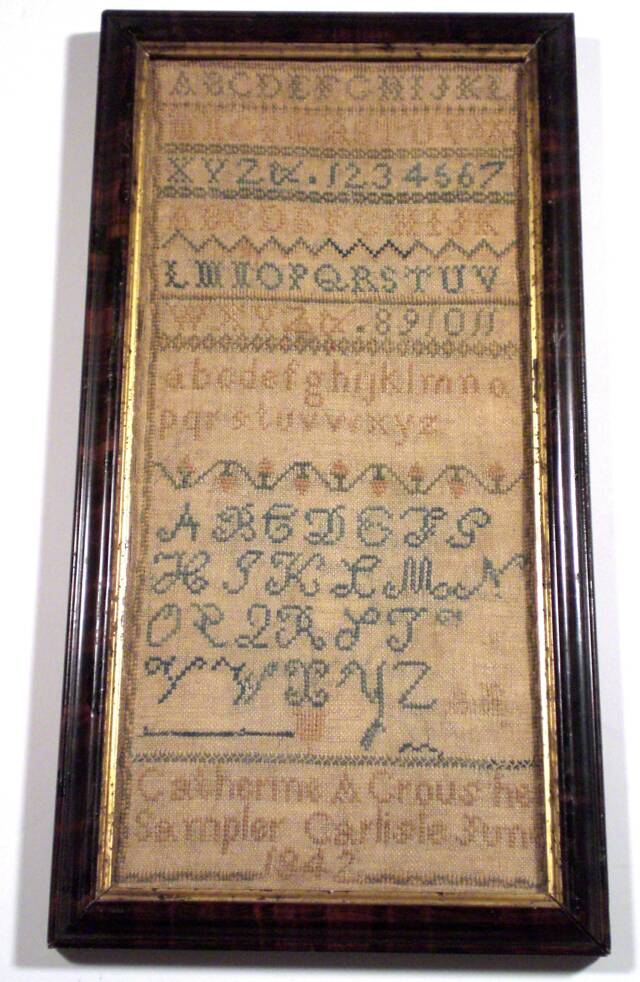 ABCDEFGHIJKL
XYZ&. 1234567
ABCDEFGHIJK
LMNOPQRSTUV
WXYZ&. 891011
abcdefghijklmno
pqrstuvwxyz
ABCDEFG
HIKLMN
OPQRST
VWXYZ
Catherine A Crous he
Sampler Carlisle June
1842